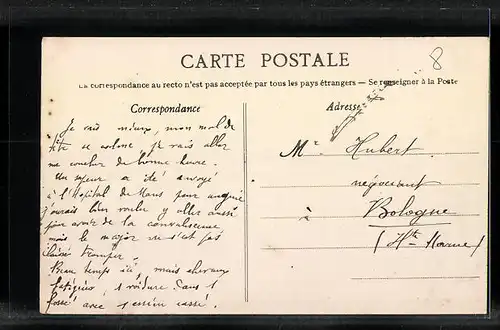 8
CARTE POSTALE
La correspondance au recto n'est pas acceptée par tous les pays étrangers — Se renseigner à la Poste
Correspondance
Adresse
Je vais mieux, mon mal de
tête se calme. Je vais aller
me coucher de bonne heure.
Un sapeur a été envoyé
à l'Hôpital du Mans pour
j'aurais bien voulu y aller aussi
pour avoir de la convalescence
mais le major ne s'est pas
laissé tromper.
Beau temps ici, mais chevaux
fatigués 1 voiture dans 1
fossé avec 1 essieu cassé.
Mr Hubert
négociant
à Bologne
(Hte Marne)